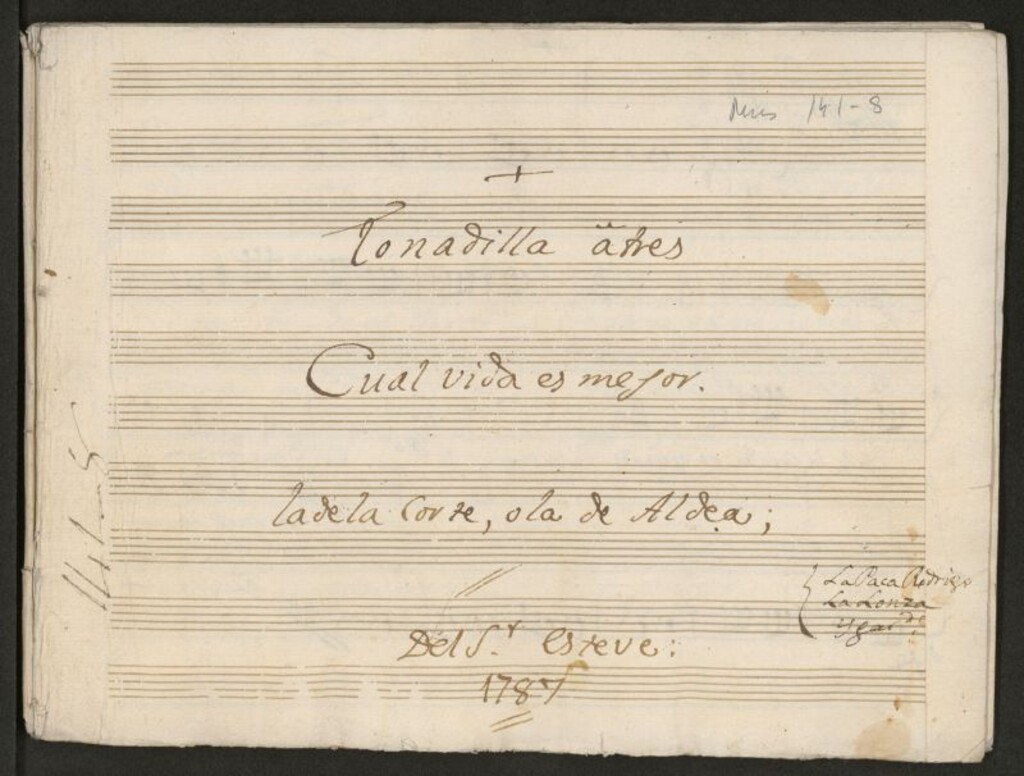 Mus 141-8
+
Tonadilla â tres
Cual vida es mejor.
la de la Corte, o la de Aldea;
La Paca Rodrigo
La Lonza
Del S.r Esteve:
1787
141-8